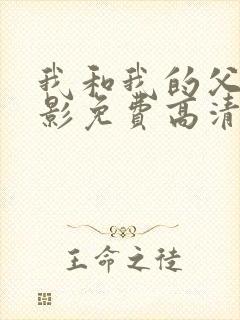 我和我的父
影免费高清
王命之徒